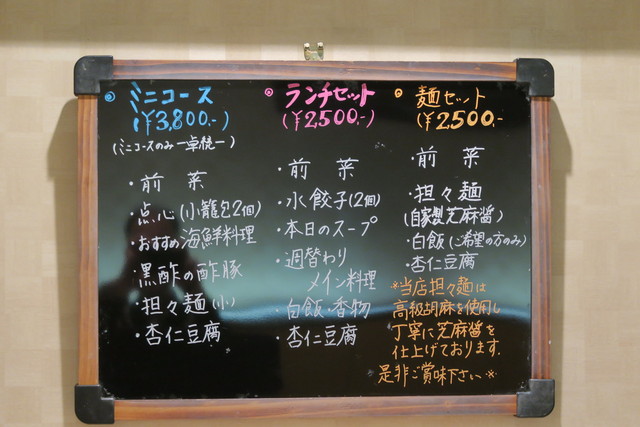 ◎ミニコース
(¥3,800.-)
(ミニコースのみ一卓統一)
・前菜
・点心(小籠包2個)
・おすすめ海鮮料理
・黒酢の酢豚
・担々麺(小)
・杏仁豆腐
◎ランチセット
(¥2,500.-)
・前菜
・水餃子(2個)
・本日のスープ
・週替わり
メイン料理
・白飯・香物
・杏仁豆腐
◎麺セット
(¥2,500.-
・前菜
・担々麺
(自家製芝麻醤)
・白飯(ご希望の方のみ)
・杏仁豆腐
※当店担々麺は
高級胡麻を使用し
丁寧に芝麻醤を
仕上げております.
是非ご賞味下さい※